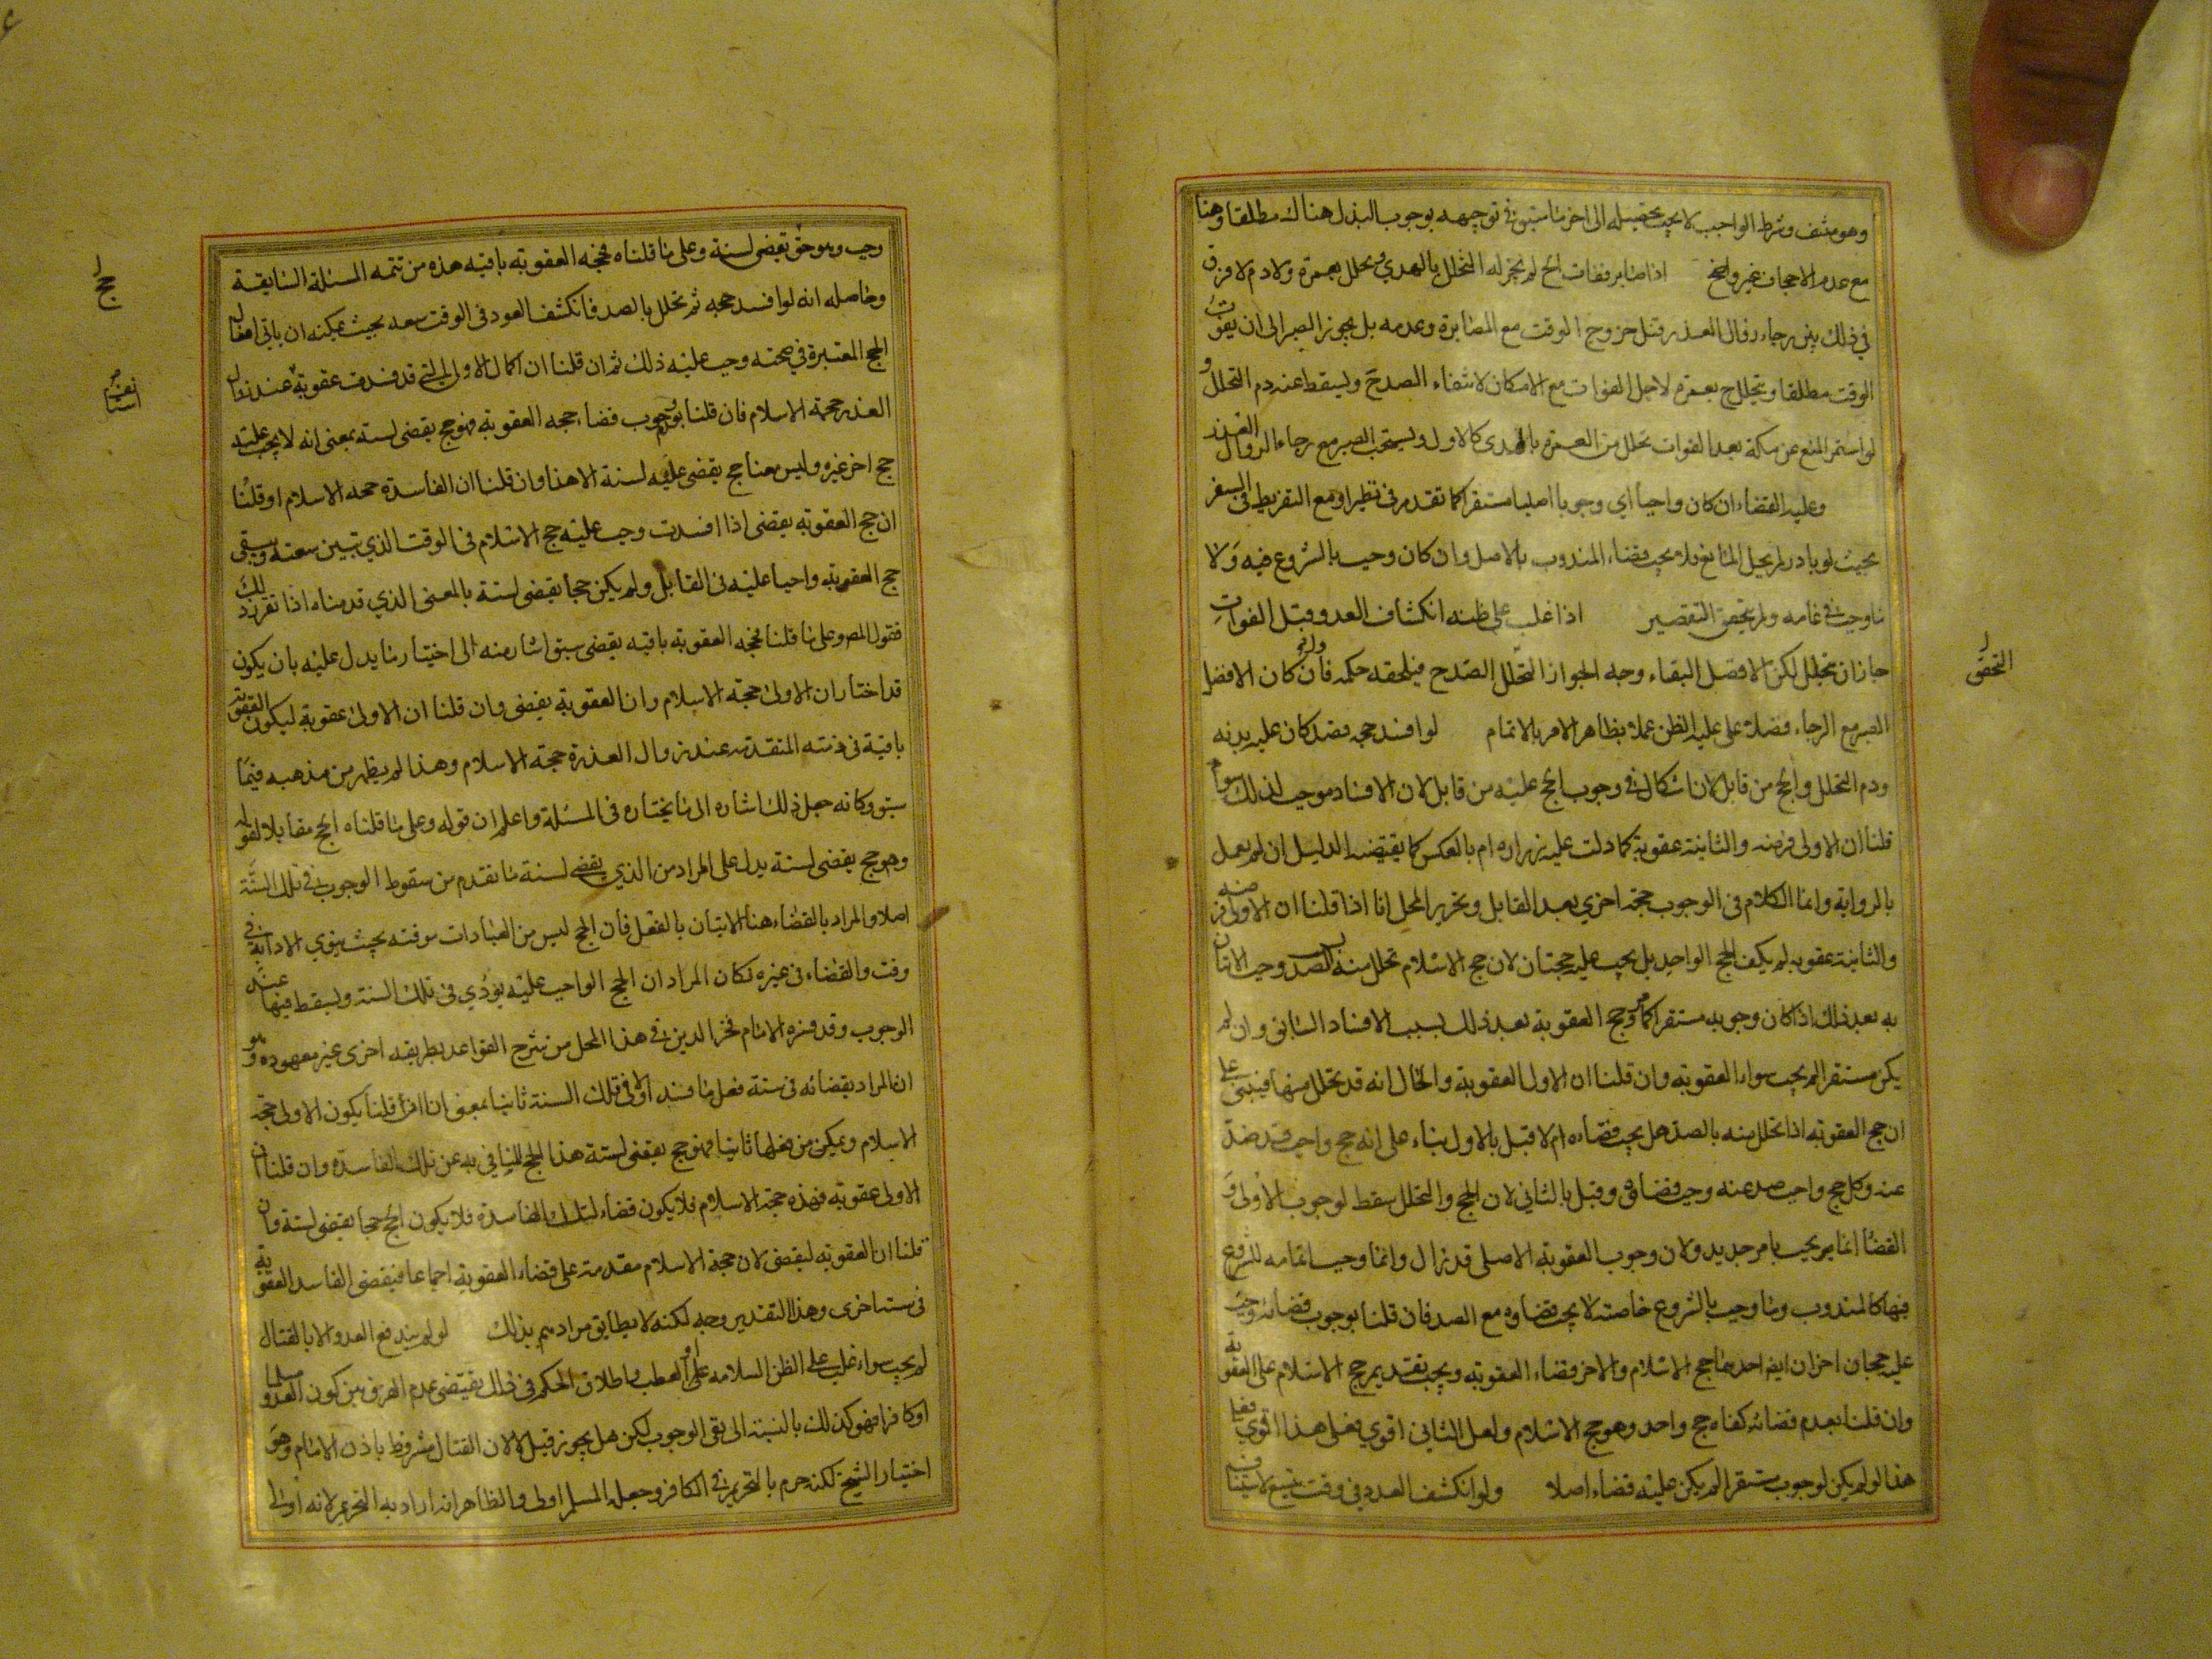 وهو منتف وشرط الواجب لا يجب تحصيله الى اخر ما سبق في توجيهه بوجوب البذل هناك مطلقا وهنا
مع عدم الاجحاف غير واضح اذا صابر ففات الحج لم يجز له التحلل بالهدي وتحلل بعمرة ولا دم لا فرق
في ذلك بين رجاء زوال العذر قبل خروج الوقت مع المصابرة وعدمه بل يجوز الصبر الى ان يفوت
الوقت مطلقا ويتحلل ح بعمرة لاجل الفوات مع الامكان لانتفاء الصد ح ويسقط عنه دم التحلل و
لو استمر المنع عن مكة بعد الفوات تحلل من العمرة بالهدي كالاول ويستحب الصبر مع رجاء الزوال العذر
وعليه القضاء ان كان واجبا اي وجوبا اصليا مستقرا كما تقدم في نظيره او مع التفريط في السفر
بحيث لو بادر لم يحل المانع فلا يجب قضاء المندوب بالاصل وان كان وجب بالشروع فيه ولا
ما وجب في عامه ولم يتحقق التقصير اذا غلب على ظنه انكشاف العدو قبل الفوات
جاز ان يتحلل لكن الافضل البقاء وجه الجواز التحلل الصد ح فيلحقه حكمه وان كان الافضل
الصبر مع الرجاء فضلا على غلبة الظن عملا بظاهر الامر بالاتمام لو افسد حجه فصد كان عليه بدنه
ودم التحلل والحج من قابل لا اشكال في وجوب الحج عليه من قابل لان الافساد موجب لذلك سواء
قلنا ان الاولى فرضه والثانية عقوبة كما دلت عليه زرارة ام بالعكس كما يقتضيه الدليل ان لم يعمل
بالرواية وانما الكلام في الوجوب حجة اخرى بعد القابل وتحرير المحل انا اذا قلنا ان الاولى فرضه
والثانية عقوبه لم يكف الحج الواحد بل يجب عليه حجتان لان حج الاسلام تحلل منه بالصد وجب الاتيان
به بعد ذلك اذا كان وجوبه مستقرا كما مر وحج العقوبة بعد ذلك بسبب الافساد السابق وان لم
يكن مستقرا لم يجب سواء العقوبة وان قلنا ان الاول العقوبة والحال انه قد تحلل منها فيبنى على
ان حج العقوبة اذا تحلل منه بالصد هل يجب قضاءه ام لا قيل بالاول بناء على انه حج واجب قد صد
عنه وكل حج واجب صد عنه وجب قضاؤه وقيل بالثاني لان الحج والتحلل سقط لوجوب الاولى و
القضا انما يجب بامر جديد ولان وجوب العقوبة الاصلى قد زال وانما وجب اتمامه للشروع
فيها كالمندوب وما وجب بالشروع خاصة لا يجب قضاؤه مع الصد فان قلنا بوجوب قضائه وجب
عليه حجان اخران ايضا احدهما حج الاسلام والاخر قضاء العقوبة ويجب تقديم حج الاسلام على العقوبة
وان قلنا بعدم قضائه كفاه حج واحد وهو حج الاسلام ولعل الثاني اقوى فعلى هذا القوي
هذا لو لم يكن لوجوب مستقرا لم يكن عليه قضاء اصلا ولو انكشف العدو في وقت يتسع لاستيناف
التحقق
وجب وهو حج يقضى لسنة وعلى ما قلناه فحجه العقوبة باقيه هذه من تتمه المسئلة السابقة
وحاصله انه لو افسد حجه ثم تحلل بالصد فانكشف العدو في الوقت سعه بحيث يمكنه ان ياتي افعال
الحج المعتبرة في صحته وجب عليه ذلك ثم ان قلنا ان اكمال الاولى التي قد فسدت عقوبة عند زوال
العذر حجة الاسلام فان قلنا بوجوب قضاء حجه العقوبة فهو حج يقضى لسنته بمعنى انه لا يجب عليه
حج اخر غيره وليس معنا حج يقضى عليه لسنة الا هذا وان قلنا ان الفاسدة حجه الاسلام او قلنا
ان حج العقوبة يقضى اذا افسدت وجب عليه حج الاسلام في الوقت الذي تبين سعته ويبقى
حج العقوبة واجبا عليه في القابل ولم يكن حجا يقضى لسنة بالمعنى الذي قدمناه اذا تقرر ذلك
فقول المص وعلى ما قلناه فحجه العقوبة باقيه يقضى سبق اشاره منه الى اختيار ما يدل عليه بان يكون
قد اختار ان الاولى حجة الاسلام وان العقوبة يقضى وان قلنا ان الاولى عقوبة ليكون العقوبة
باقية في ذمته المتقدمة عند زوال العذرة حجة الاسلام وهذا لم يظهر من مذهبه فيما
سبق وكانه جعل ذلك اشاره الى ما يختاره في المسئلة واعلم ان قوله وعلى ما قلناه الحج مقابلا لقوله
وهو حج يقضى لسنة يدل على المراد من الذي يقضى لسنة ما تقدم من سقوط الوجوب في تلك السنة
اصلا والمراد بالقضاء هنا الاتيان بالفعل فان الحج ليس من العبادات موقته بحيث ينوي الاداء به في
وقت والقضاء في غيره فكان المراد ان الحج الواجب عليه يؤدي في تلك السنة ويسقط فيها عنه
الوجوب وقد فسره الامام فخر الدين في هذا المحل من شرح القواعد بطريقه اخرى غير معهوده وهو
ان المراد بقضائه في سنة فعل ما فسد اولا في تلك السنة ثانيا بمعنى انا اذا قلنا يكون الاولى حجة
الاسلام ويمكن من فعلها ثانيا فهو حج يقضى لسنة هذا الحج الثاني به عن تلك الفاسدة وان قلنا ان
الاولى عقوبة فهذه حجة الاسلام فلا يكون قضاء لتلك الفاسدة فلا يكون الحج حجا يقضى لسنة وان
قلنا ان العقوبة ليقضى لان حجة الاسلام مقدمة على قضاء العقوبة اجماعا فيقضى الفاسد العقوبة
في سنة اخرى وهذا التقدير وجه لكنه لا يطابق مرادهم بذلك لو لم يندفع العدو الا بالقتال
لم يجب سواء غلب على الظن السلامه او العطب واطلاق الحكم في ذلك يقتضى عدم الفرق بين كون العدو مسلما
او كافرا فهو كذلك بالنسبة الى نفى الوجوب لكن هل يجوز قيل لا لان القتال مشروط باذن الامام وهو
اختيار الشيخ لكنه جرم بالتحريم في الكافر وجعل المسلم اولى والظاهر انه اراد به التحريم لانه اولى
حج